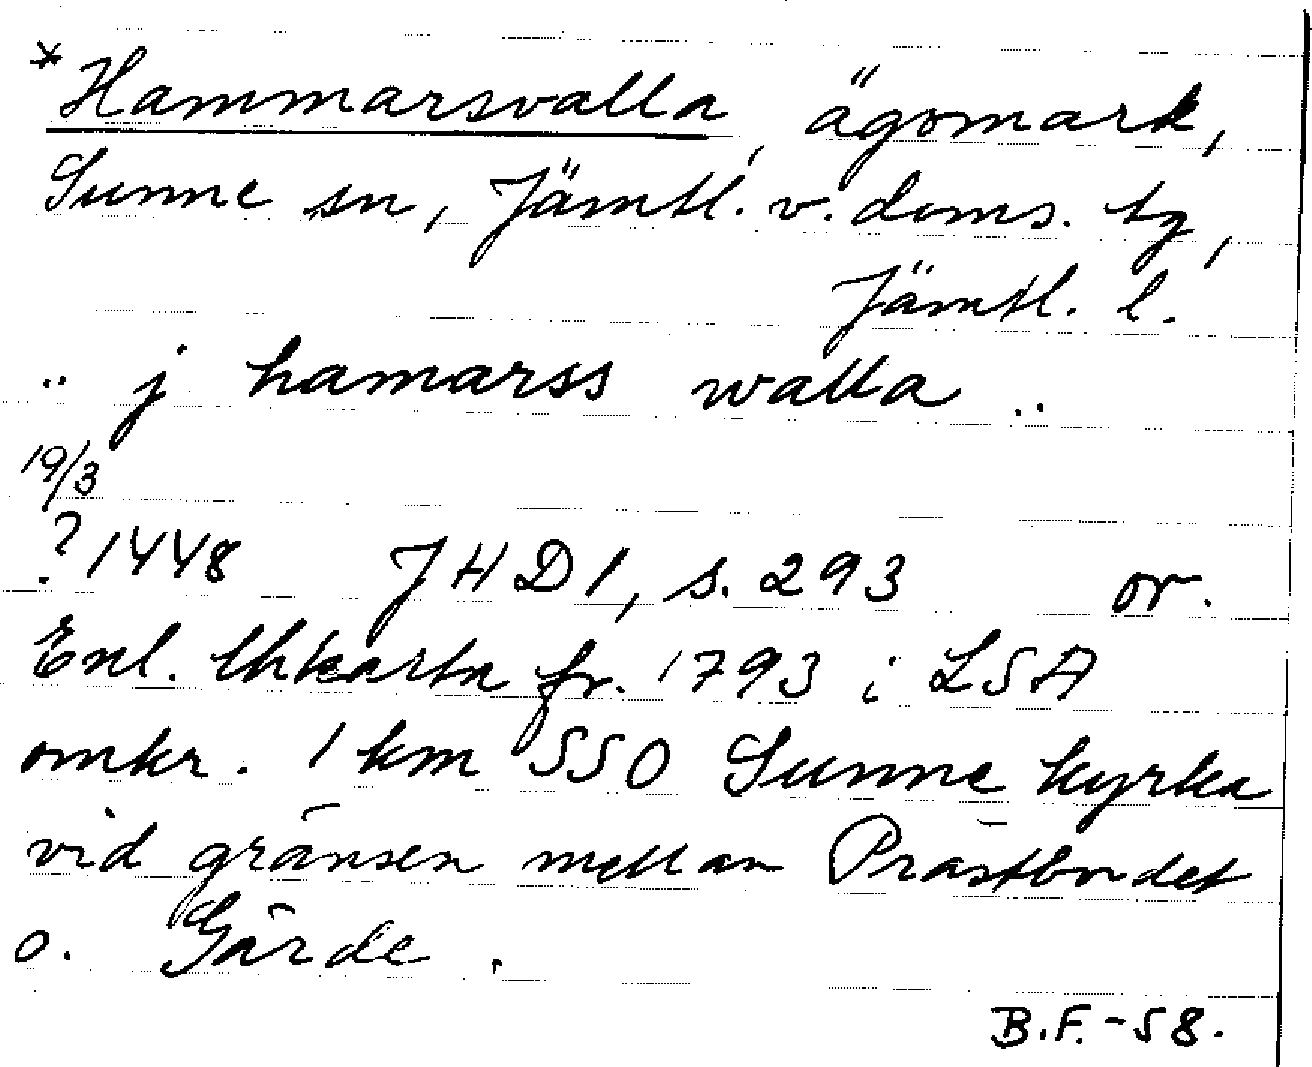 *Hammarsvalla, ägomark,
Sunne sn, Jämtl. v. doms. tg,
Jämtl. l.
.. j hamarss walla ..
19/3
? 1448 JHD1, s. 293 or.
Enl. Uhkarta fr. 1793 i LSA
omkr. 1 km SSO Sunne kyrka
vid gränsen mellan Prästbordet
o. Gärde.
B.F.-58.